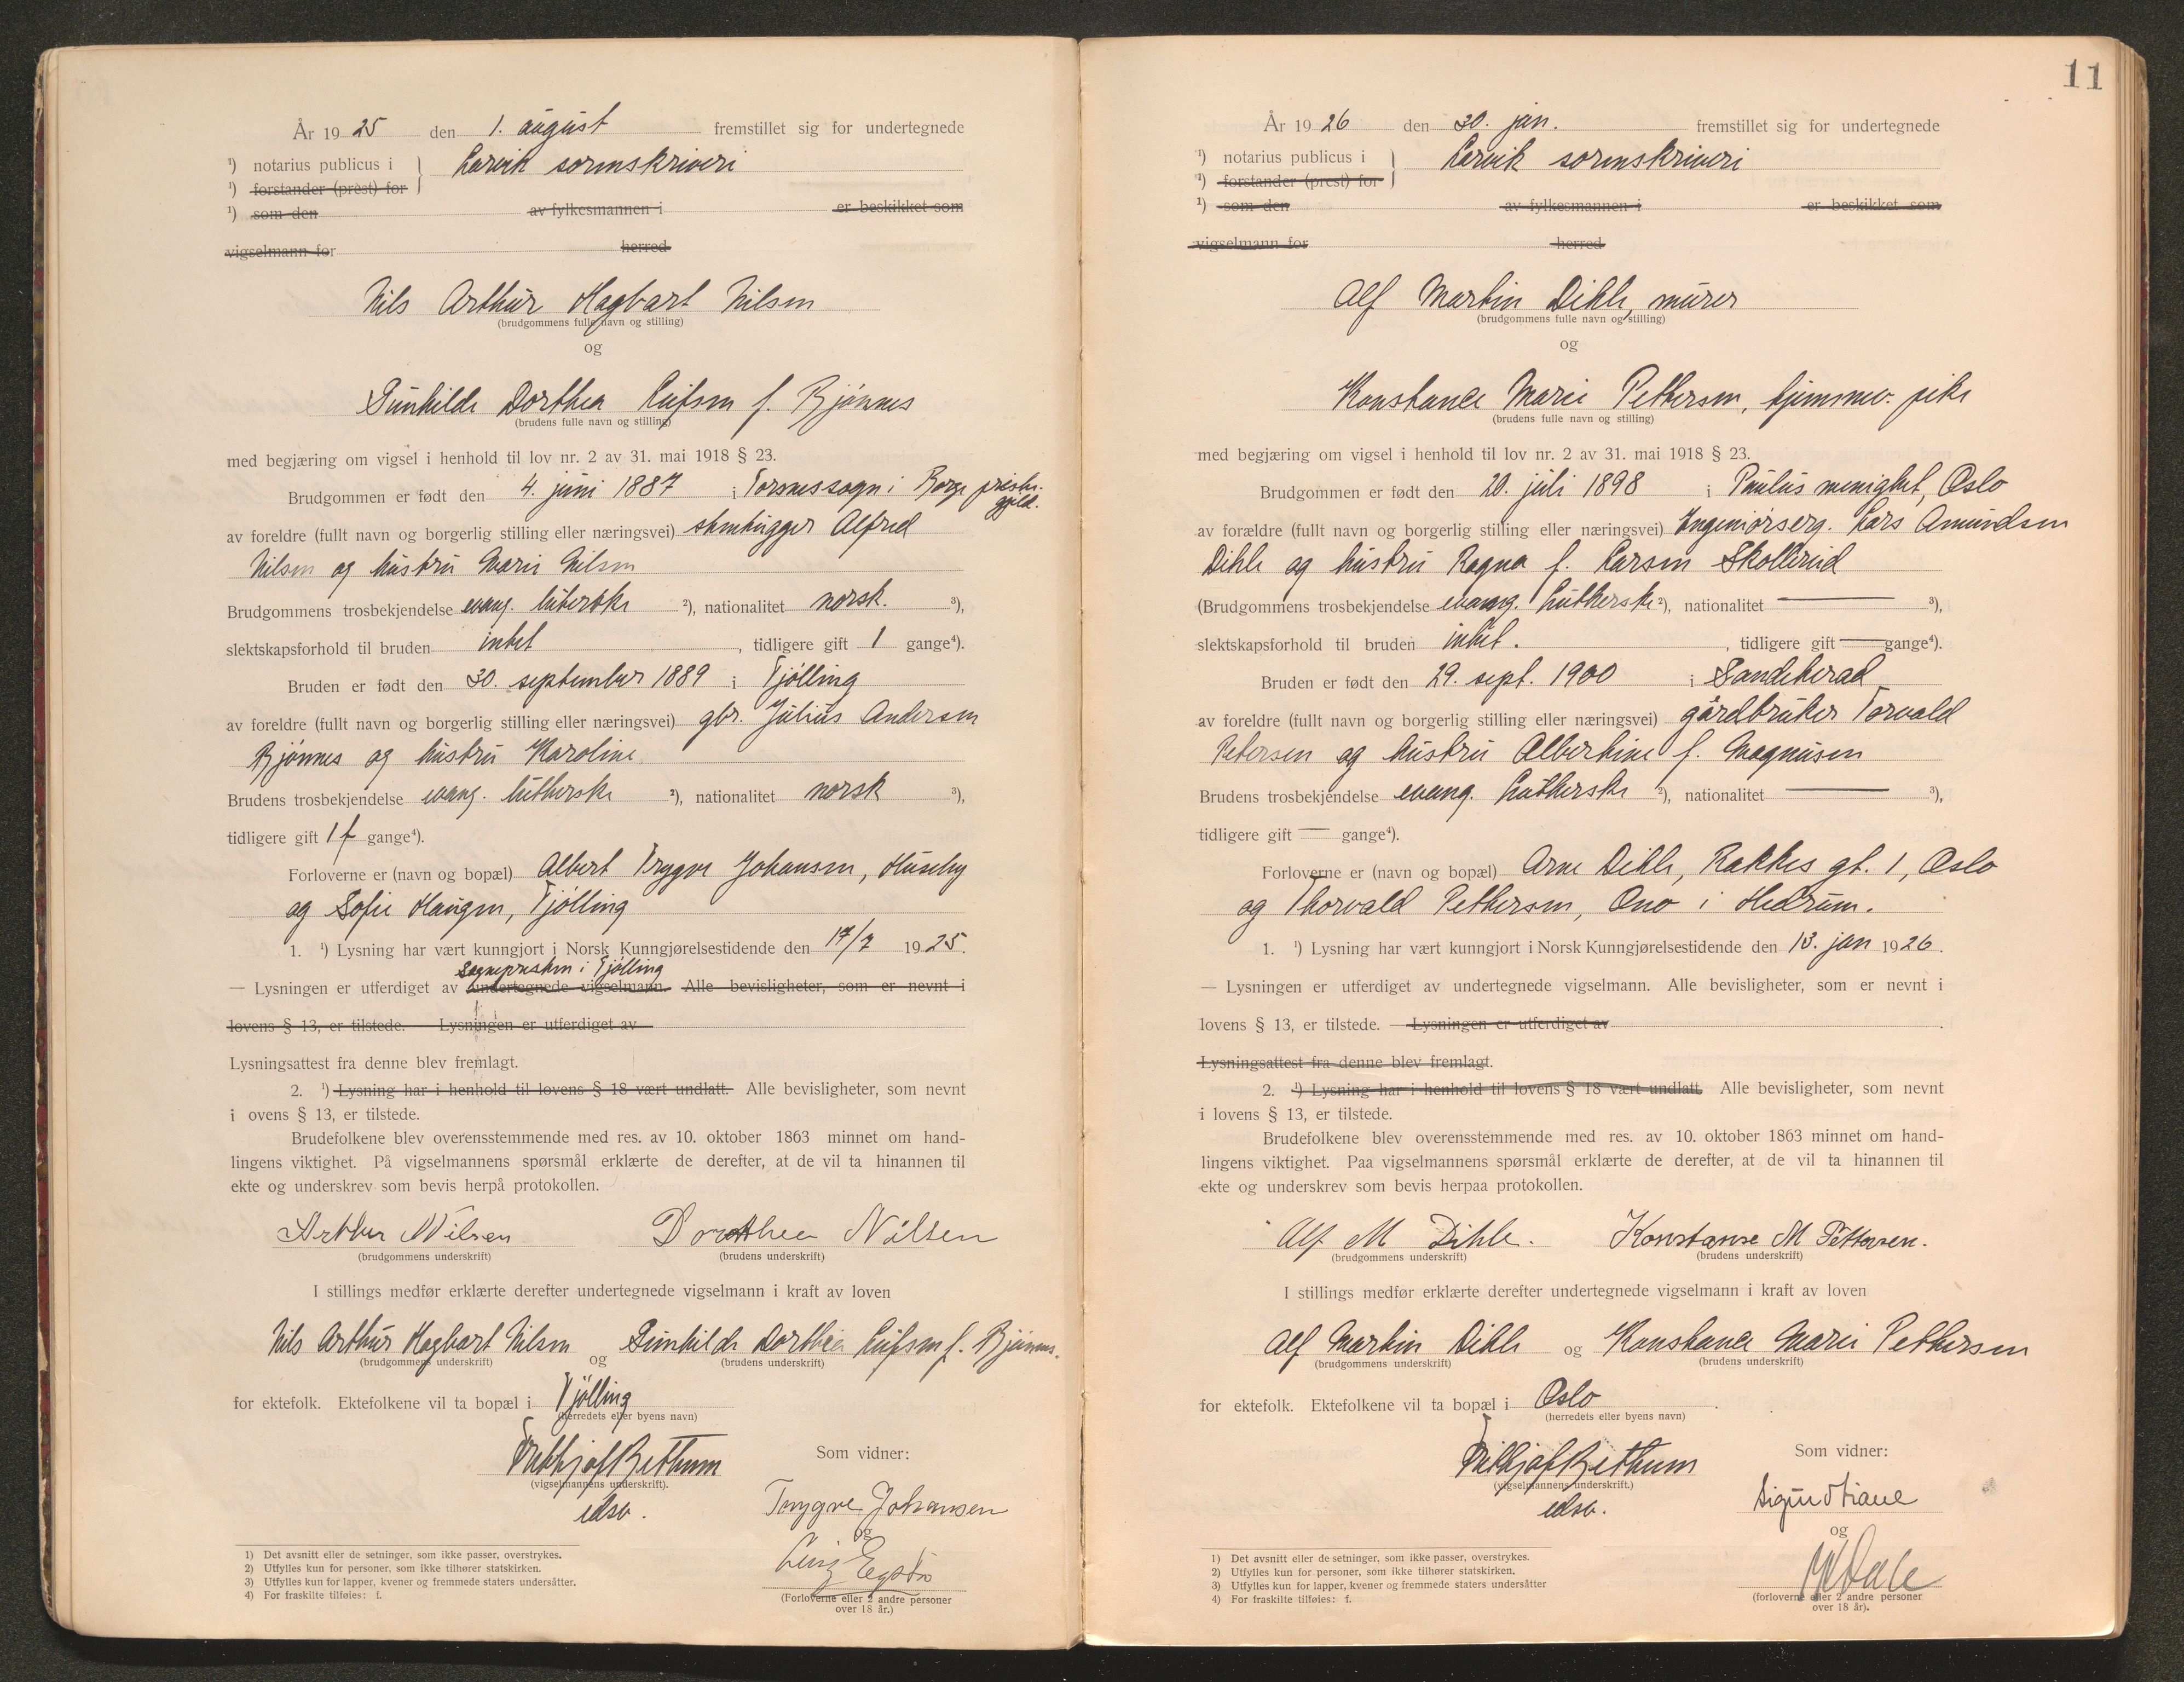 År 1925 den 1. august fremstillet sig for undertegnede
¹) notarius publicus i } Larvik sorenskriveri
¹) forstander (prest) for
¹) som den av fylkesmannen i er beskikket som
vigselmann for herred
Nils Arthur Hagbart Nilsen
(brudgommens fulle navn og stilling)
og
Gunhilde Dorthea Leifsen f. Bjønnes
(brudens fulle navn og stilling)
med begjæring om vigsel i henhold til lov nr. 2 av 31. mai 1918 § 23.
Brudgommen er født den 4. juni 1887 i Torsnes sogn i Borge preste-
gjeld.
av foreldre (fullt navn og borgerlig stilling eller næringsvei) stenhugger Alfred
Nilsen og hustru Marie Nilsen
Brudgommens trosbekjendelse evang. lutherske ²), nationalitet norsk. ³),
slektskapsforhold til bruden intet , tidligere gift 1 gange⁴).
Bruden er født den 30. september 1889 i Tjølling
av foreldre (fullt navn og borgerlig stilling eller næringsvei) gbr. Julius Andersen
Bjønnes og hustru Karoline
Brudens trosbekjendelse evang. lutherske ²), nationalitet norsk ³),
tidligere gift 1 f gange⁴).
Forloverne er (navn og bopæl) Albert Trygve Johansen, Huseby
og Sofie Haugen, Tjølling
1. ¹) Lysning har vært kunngjort i Norsk Kunngjørelsestidende den 17/7 1925.
Sogneprsten i Tjølling
— Lysningen er utferdiget av undertegnede vigselmann. Alle bevisligheter, som er nevnt i
lovens § 13, er tilstede. — Lysningen er utferdiget av
Lysningsattest fra denne blev fremlagt.
2. ¹) Lysning har i henhold til lovens § 18 vært undlatt. Alle bevisligheter, som nevnt
i ovens § 13, er tilstede.
Brudefolkene blev overensstemmende med res. av 10. oktober 1863 minnet om hand-
lingens viktighet. På vigselmannens spørsmål erklærte de derefter, at de vil ta hinannen til
ekte og underskrev som bevis herpå protokollen.
Arthur Nilsen Dorthea Nilsen
(brudgommens underskrift) (brudens underskrift)
I stillings medfør erklærte derefter undertegnede vigselmann i kraft av loven
Nils Arthur Hagbart Nilsen og Gunhilde Dorthea Leifsen f. Bjønnes.
(brudgommens underskrift) (brudens underskrift)
for ektefolk. Ektefolkene vil ta bopæl i Tjølling
(herredets eller byens navn)
Frithjof Bettum Som vidner:
(vigselmannens underskrift).
edsv. Trygve Johansen
og
(Forloverne eller 2 andre personer
over 18 år.)
1) Det avsnitt eller de setninger, som ikke passer, overstrykes.
2) Utfylles kun for personer, som ikke tilhører statskirken.
3) Utfylles kun for lapper, kvener og fremmede staters undersåtter.
4) For fraskilte tilføies: f.
11
År 1926 den 30. jan. fremstillet sig for undertegnede
¹) notarius publicus i } Larvik sorenskriveri
¹) forstander (prest) for
¹) som den av fylkesmannen i er beskikket som
vigselmann for herred
Alf Martin Dihle, murer
(brudgommens fulle navn og stilling)
og
Konstance Marie Pettersen, hjemmev. pike
(brudens fulle navn og stilling)
med begjæring om vigsel i henhold til lov nr. 2 av 31. mai 1918 § 23.
Brudgommen er født den 20. juli 1898 i Paulus menighet, Oslo
av forældre (fullt navn og borgerlig stilling eller næringsvei) Ingeniørserg. Lars Amundsen
Dihle og hustru Ragna f. Larsen Skollerud
(Brudgommens trosbekjendelse evang. lutherske ²), nationalitet — ³),
slektskapsforhold til bruden intet. , tidligere gift — gange⁴).
Bruden er født den 29. sept. 1900 i Sandeherad
av foreldre (fullt navn og borgerlig stilling eller næringsvei) gårdbruker Torvald
Petersen og hustru Albertine f. Magnusen
Brudens trosbekjendelse evang. lutherske ²), nationalitet — ³),
tidligere gift — gange⁴).
Forloverne er (navn og bopæl) Arne Dihle, Rakkes gt. 1, Oslo
og Thorvald Pettersen, Ono i Hedrum.
1. ¹) Lysning har vært kunngjort i Norsk Kunngjørelsestidende den 13. jan 1926.
— Lysningen er utferdiget av undertegnede vigselmann. Alle bevisligheter, som er nevnt i
lovens § 13, er tilstede. — Lysningen er utferdiget av
Lysningsattest fra denne blev fremlagt.
2. ¹) Lysning har i henhold til lovens § 18 vært undlatt. Alle bevisligheter, som nevnt
i lovens § 13, er tilstede.
Brudefolkene blev overensstemmende med res. av 10. oktober 1863 minnet om hand-
lingens viktighet. Paa vigselmannens spørsmål erklærte de derefter, at de vil ta hinannen til
ekte og underskrev som bevis herpaa protokollen.
Alf M Dihle. Konstanse M Pettersen.
(brudgommens underskrift) (brudens underskrift)
I stillings medfør erklærte derefter undertegnede vigselmann i kraft av loven
Alf Martin Dihle og Konstance Marie Pettersen
(brudgommens underskrift) (brudens underskrift)
for ektefolk. Ektefolkene vil ta bopæl i Oslo
(herredets eller byens navn)
Frithjof Bettum Som vidner:
(vigselmannens underskrift.)
edsv.
og
(forloverne eller 2 andre personer
over 18 år).
1) Det avsnitt eller de setninger, som ikke passer, overstrykes.
2) Utfylles kun for personer, som ikke tilhører statskirken.
3) Utfylles kun for lapper, kvener og fremmede staters undersåtter
4) For fraskilte tilføies: f.